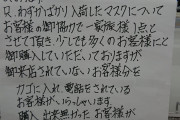 只、わずかばかり入荷したマスクについて
お客様の御協力で一家族様1点と
させて頂き、少しでも多くのお客様に
御購入していただいておりますが
御来店されていないお客様分を
カゴに入れ、電話をされている
お客様がいらっしゃいます。
購入出来無かったお客様が